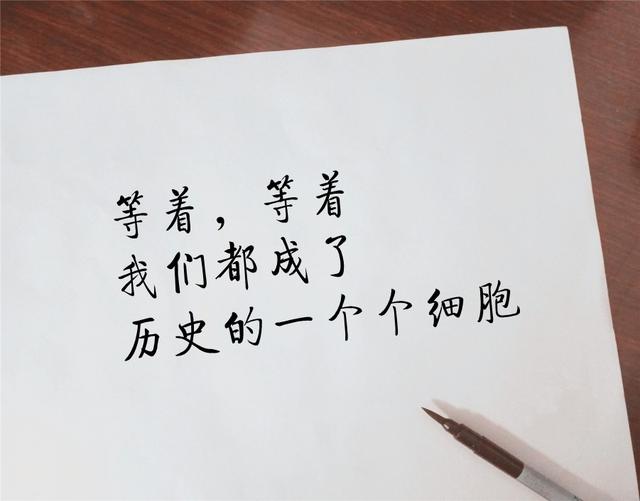 等着，等着
我们都成了
历史的一个个细胞